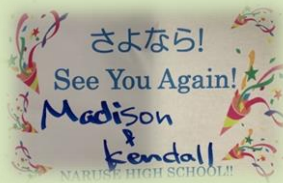 さよなら!
See You Again!
Madison
&
Kendall
NARUSE HIGH SCHOOL!!